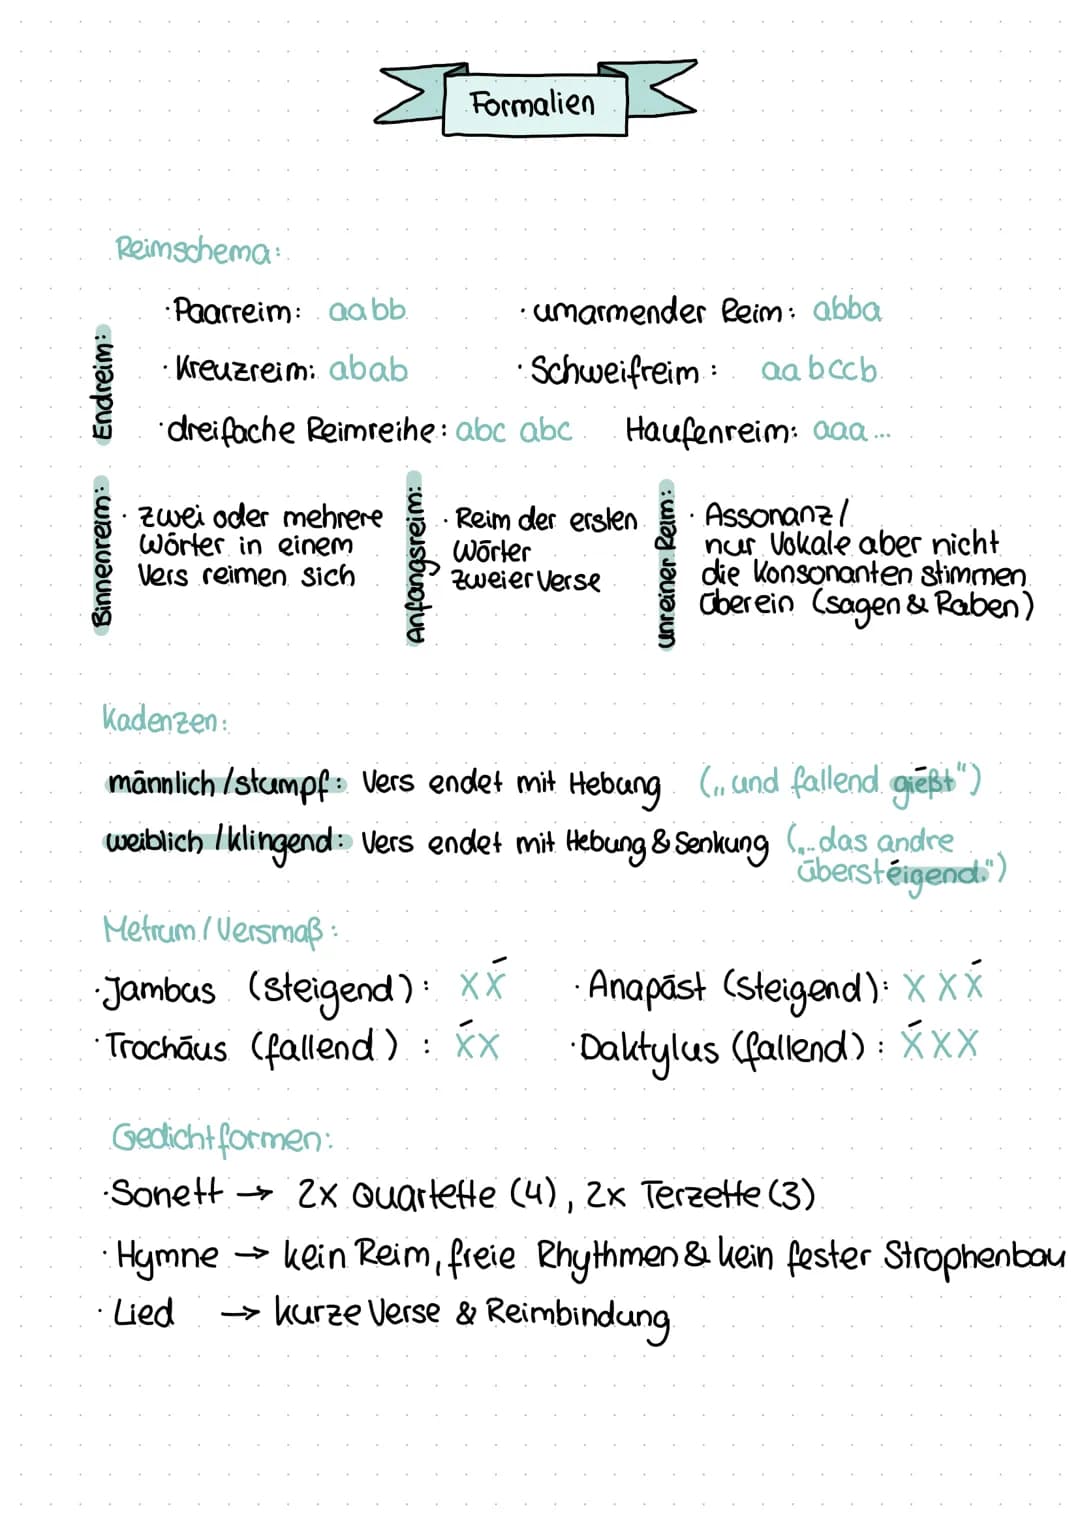 Formalien
Reimschema:
Endreim:
·Paarreim: aabb
·umarmender Reim: abba
·Kreuzreim: abab
·Schweifreim: aabccb
·dreifache Reimreihe: abc abc
Haufenreim: aaa...
Binnenreim:
· zwei oder mehrere
Wörter in einem
Vers reimen sich
Anfangsreim:
· Reim der ersten
Wörter
zweier Verse
unreiner Reim:
· Assonanz/
nur Vokale aber nicht
die Konsonanten stimmen
überein (sagen & Raben)
Kadenzen:
männlich/stumpf: Vers endet mit Hebung („und fallend gießt")
weiblich/klingend: Vers endet mit Hebung & Senkung („...das andre
übersteigend.")
Metrum/Versmaß:
·Jambus (steigend): xx́
·Anapäst (steigend): x x x́
·Trochäus (fallend): x́x
·Daktylus (fallend): x́xx
Gedichtformen:
·Sonett → 2x Quartette (4), 2x Terzette (3)
·Hymne → kein Reim, freie Rhythmen & kein fester Strophenbau
·Lied → kurze Verse & Reimbindung